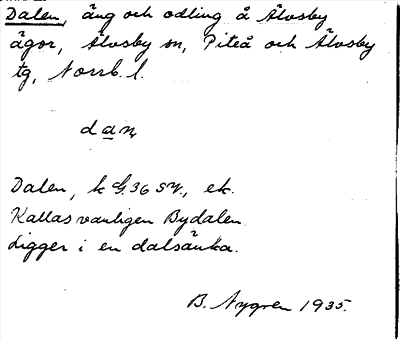 Dalen, äng och odling å Älvsby
ägor, Älvsby sn, Piteå och Älvsby
tg, Norrb. l.
dan
Dalen, k G. 36 SV, ek.
Kallas vanligen Bydalen.
Ligger i en dalsänka.
B. Nygren 1935.